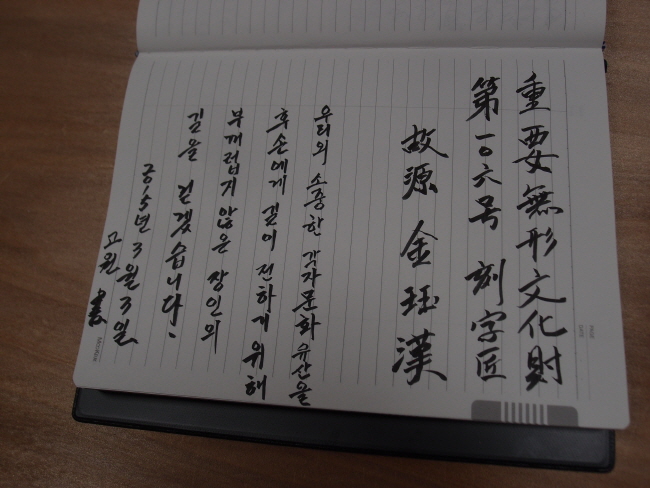 重要無形文化財
第一〇六号 刻字匠
故源 金珏漢
우리의 소중한 각자문화유산을
후손에게 길이 전하기 위해
부끄럽지 않은 장인의
길을 걷겠습니다.
15년 3월 3일
고원 書